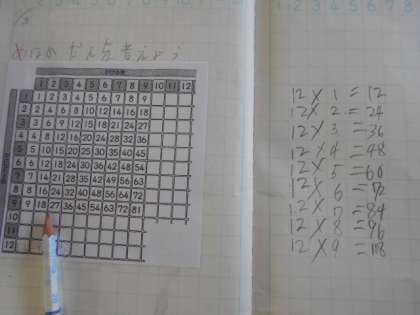 12のだんを考えよう
かける数
1 2 3 4 5 6 7 8 9 10 11 12
1 1 2 3 4 5 6 7 8 9
2 2 4 6 8 10 12 14 16 18
3 3 6 9 12 15 18 21 24 27
4 4 8 12 16 20 24 28 32 36
5 5 10 15 20 25 30 35 40 45
6 6 12 18 24 30 36 42 48 54
7 7 14 21 28 35 42 49 56 63
8 8 16 24 32 40 48 56 64 72
9 9 18 27 36 45 54 63 72 81
10
11
12
12×1=12
12×2=24
12×3=36
12×4=48
12×5=60
12×6=72
12×7=84
12×8=96
12×9=118